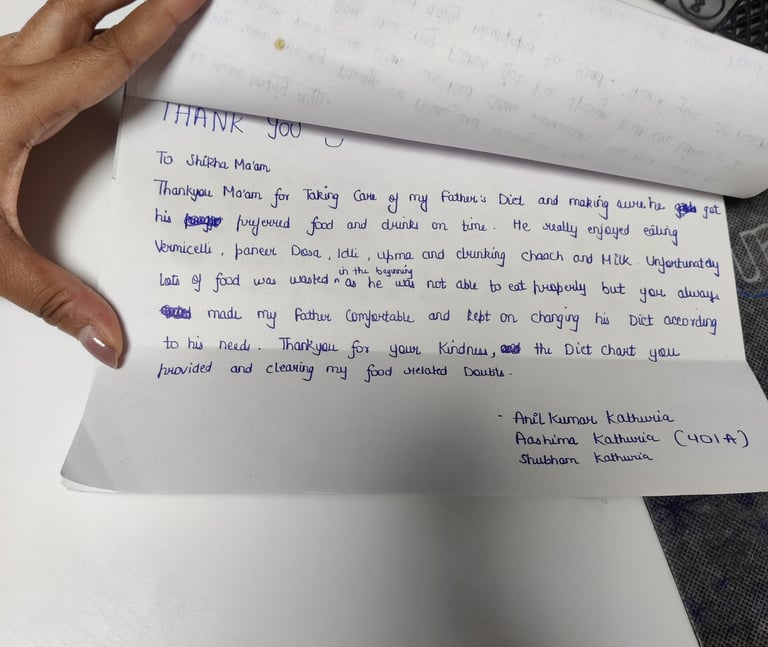 THANK YOU
To Shikha Ma'am
Thankyou Ma'am for Taking Care of my Father's Diet and making sure he got
his preferred food and drinks on time. He really enjoyed eating
Vermicelli, paneer Dosa, Idli, upma and drinking chaach and Milk. Unfortunately
lots of food was wasted in the beginning as he was not able to eat properly but you always
made my Father Comfortable and kept on changing his Diet according
to his needs. Thankyou for your Kindness, the Diet Chart you
provided and clearing my food related Doubts.
- Anil Kumar Kathuria
Aashima Kathuria (401A)
Shubham Kathuria